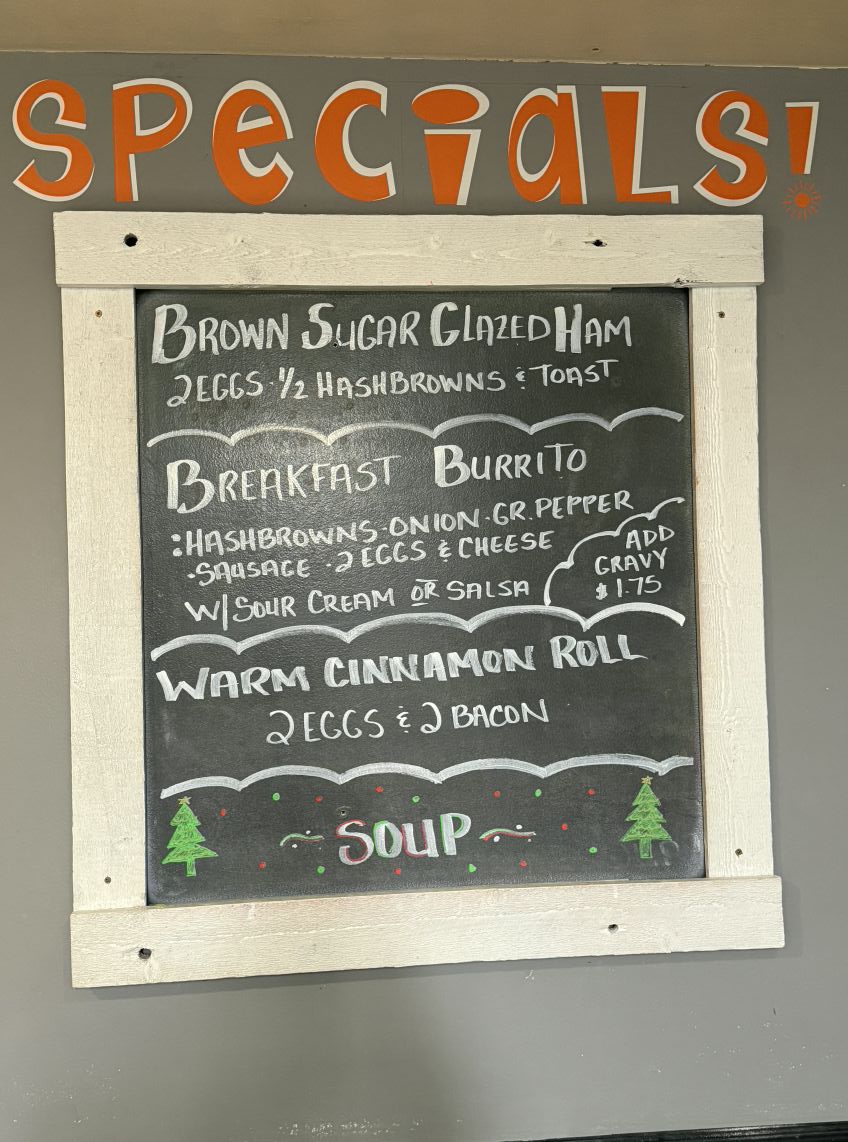 SPECiaLS!
BROWN SUGAR GLAZED HAM
2 EGGS · 1/2 HASHBROWNS & TOAST
BREAKFAST BURRITO
:HASHBROWNS · ONION · GR. PEPPER
· SAUSAGE · 2 EGGS & CHEESE
W/ SOUR CREAM OR SALSA
ADD
GRAVY
$1.75
WARM CINNAMON ROLL
2 EGGS & 2 BACON
~SOUP~